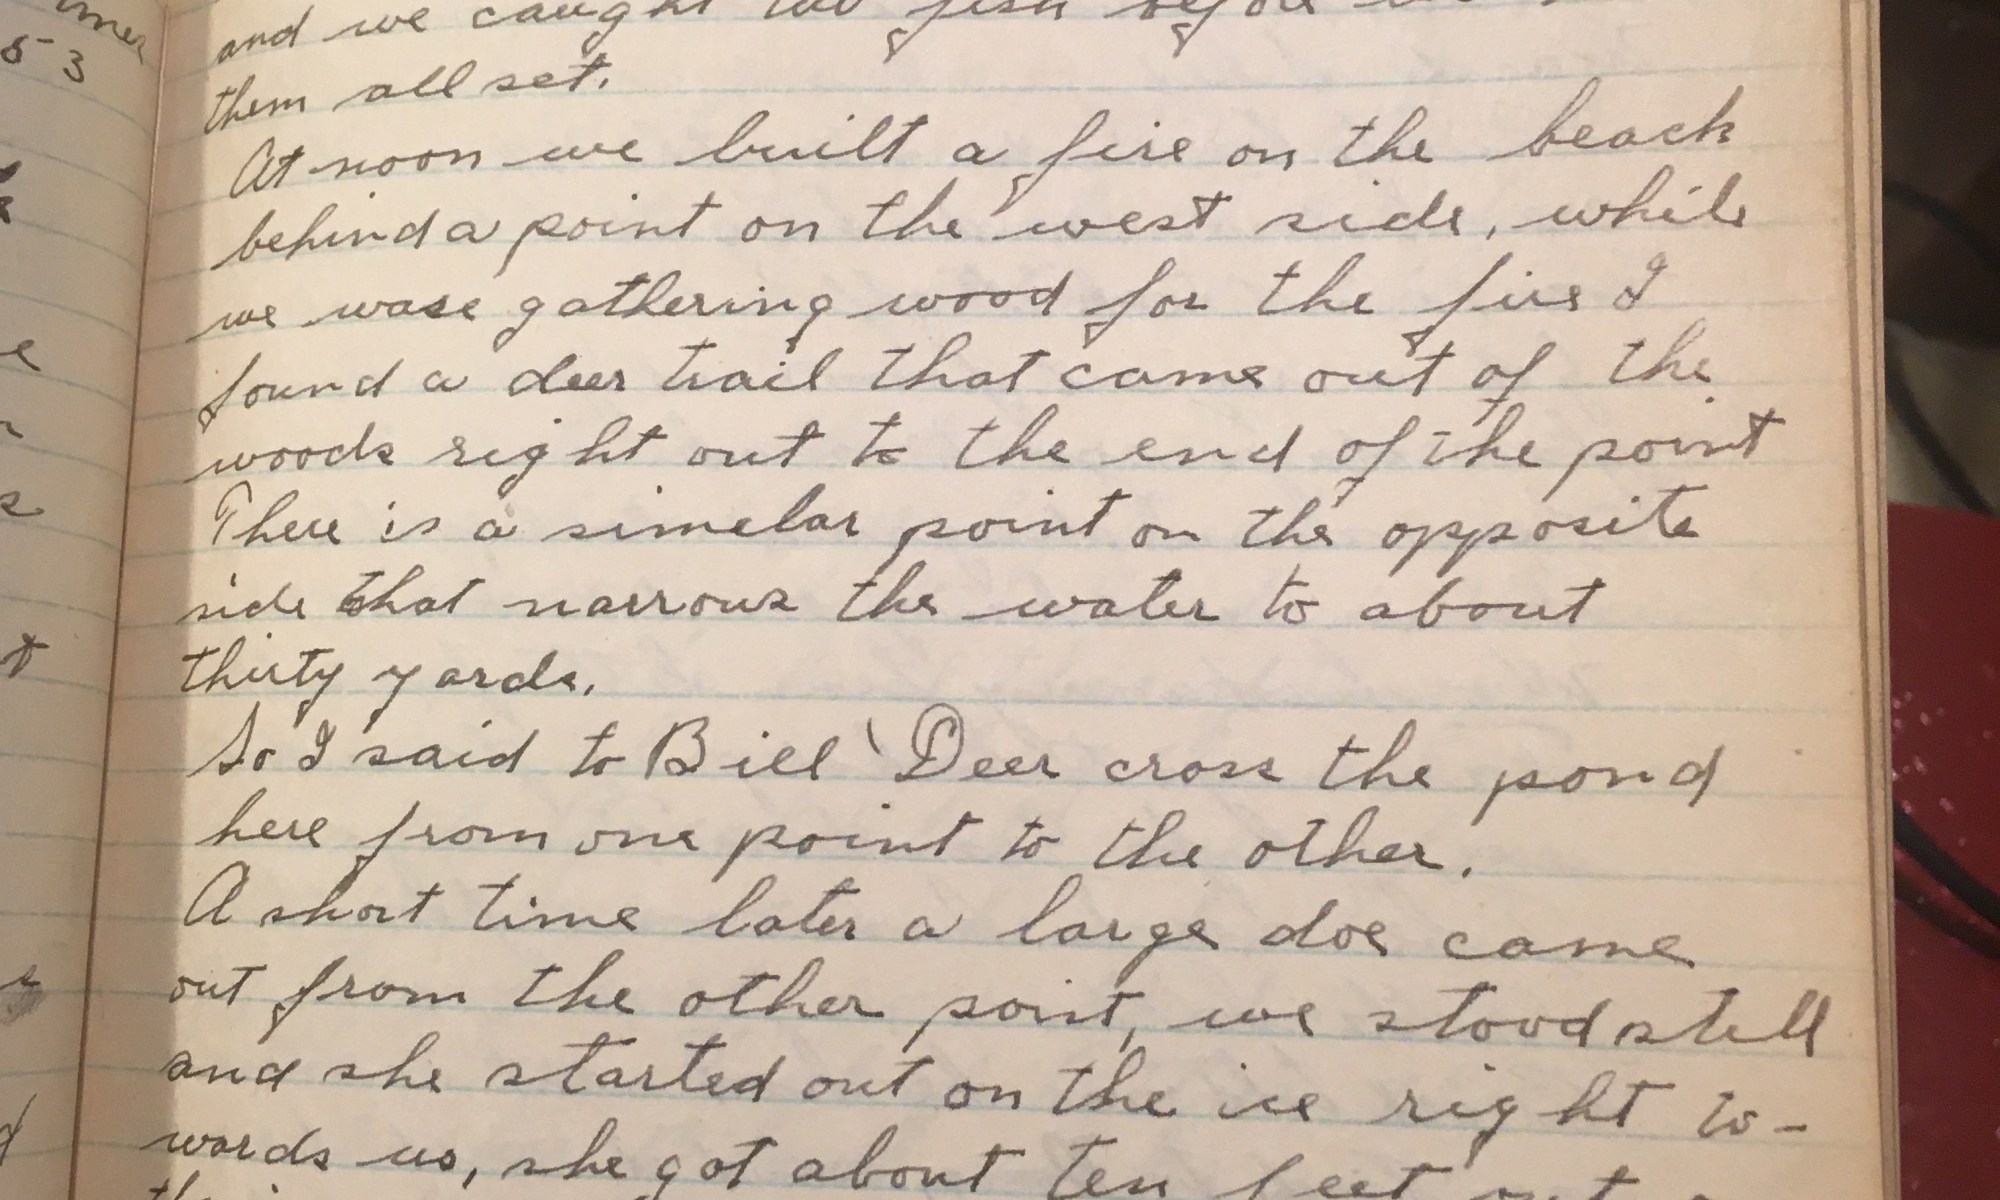 53
and we caught two fish before we
them all set.
At noon we built a fire on the beach
behind a point on the west side, while
we wase gathering wood for the fire I
found a deer trail that came out of the
woods right out to the end of the point
There is a simelar point on the opposite
side that narrows the water to about
thirty yards.
So I said to Bill 'Deer cross the pond
here from one point to the other.
A short time later a large doe came
out from the other point, we stood still
and she started out on the ice right to-
wards us, she got about ten feet out